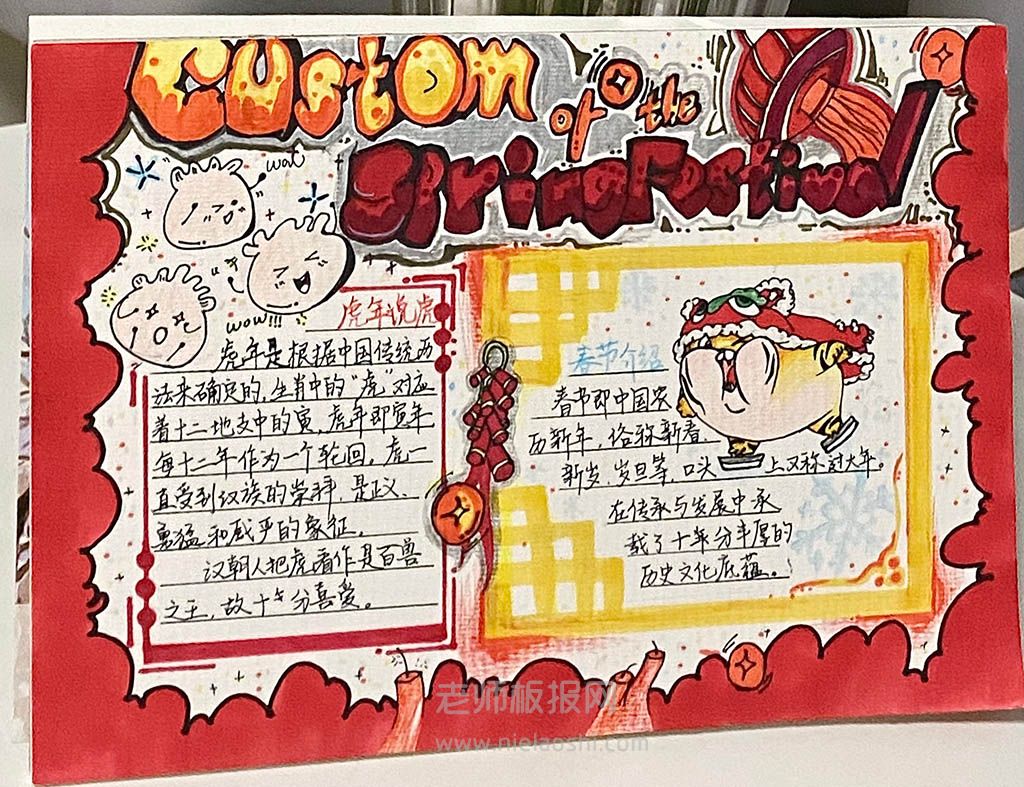 Custom
of the
Spring Festival
wat
wow!!!
虎年说虎
虎年是根据中国传统历
法来确定的,生肖中的“虎”对应
着十二地支中的寅,虎年即寅年
每十二年作为一个轮回,虎一
直受到汉族的崇拜,是正义、
勇猛和威严的象征。
汉朝人把虎看作是百兽
之王,故十分喜爱。
春节介绍
春节即中国农
历新年,俗称新春、
新岁、岁旦等,口头上又称过大年。
在传承与发展中承
载了十分丰厚的
历史文化底蕴。
老师板报网
www.nielaoshi.com